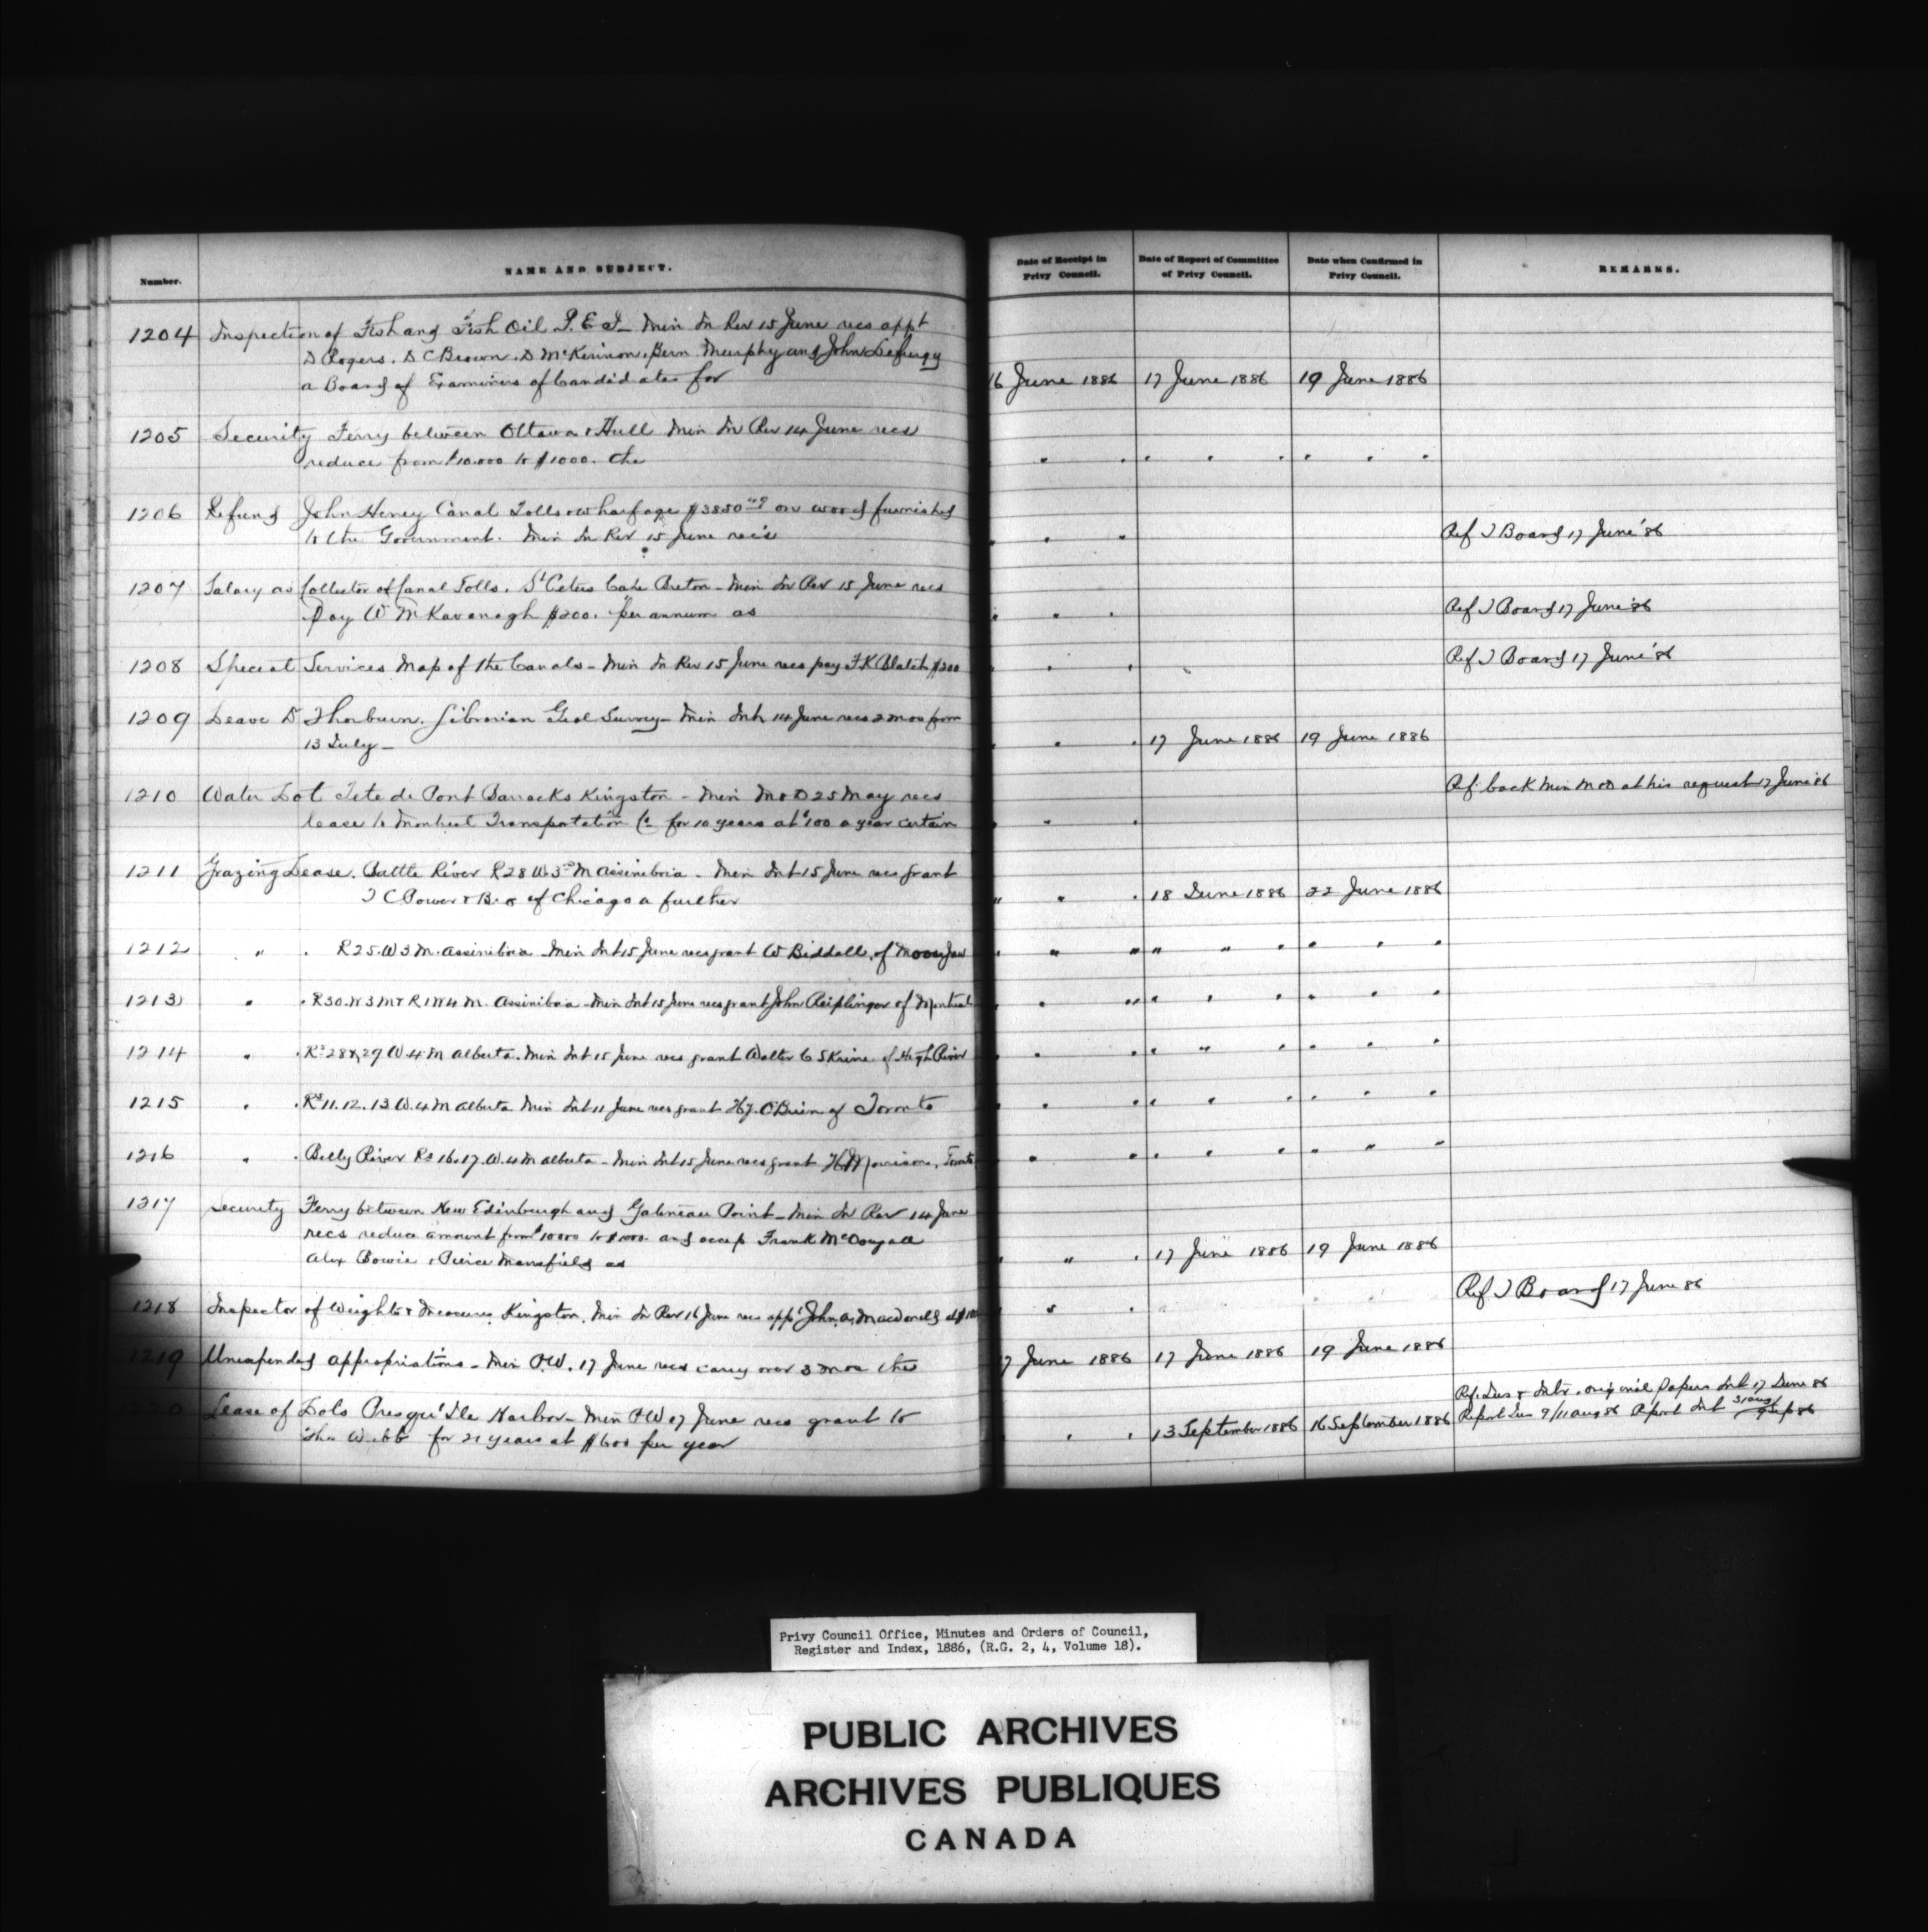 Number.
NAME AND SUBJECT.
Date of Receipt in Privy Council.
Date of Report of Committee of Privy Council.
Date when Confirmed in Privy Council.
REMARKS.
1204 Inspection of Fish and Fish Oil P.E.I_ Min In Rev 15 June recs appt
D Rogers. D C Brown. D McKinnon. Bern Murphy and John Lefurgy
a Board of Examiners of Candidates for
16 June 1886 17 June 1886 19 June 1886
1205 Security Ferry between Ottawa & Hull Min In Rev 14 June recs
reduce from $10.000 to $1000. the
1206 Refund John Heney Canal Tolls & wharfage $3850 on wood furnished
to the Government. Min In Rev 15 June recs
Ref T Board 17 June '86
1207 Salary as Collector of Canal Tolls. St Peters Cape Breton - Min In Rev 15 June recs
Pay W M Kavanagh $200. per annum as
Ref T Board 17 June '86
1208 Special Services Map of the Canals - Min In Rev 15 June recs pay F K Blatch $200
Ref T Board 17 June '86
1209 Leave D Thorburn. Librarian Geol Survey - Min Int 14 June recs 2 mos from
13 July -
17 June 1886 19 June 1886
1210 Water Lot Tete de Pont Barracks Kingston - Min M & D 25 May recs
lease to Montreal Transportation Co for 10 years at $100 a year certain
Ref. back Min M & D at his request 17 June '86
1211 Grazing Lease. Battle River R 28 W 3rd M Assiniboia - Min Int 15 June recs grant
T C Power & Bro of Chicago a further
" " . 18 June 1886 22 June 1886
1212 " . R 25. W 3 M. Assiniboia Min Int 15 June recs grant W Biddall, of Moose Jaw
1213 " . R 30. W 3 M & R 1 W 4 M. Assiniboia - Min Int 15 June recs grant John Reiplinger of Montreal
1214 " . Rs 28 & 29 W. 4 M Alberta. Min Int 15 June recs grant Walter C Skrine of High River
1215 " . Rs 11. 12. 13 W. 4 M Alberta Min Int 11 June recs grant Hy. O'Brien of Toronto
1216 " . Belly River Rs 16. 17. W. 4 M Alberta - Min Int 15 June recs grant H Morrison, Toronto
1217 Security Ferry between New Edinburgh and Gatineau Point - Min In Rev 14 June
recs reduce amount from $10000 to $1000. and accep Frank McDougall
Alex Bowie & Peirce Mansfield as
17 June 1886 19 June 1886
1218 Inspector of Weights & Measures Kingston. Min In Rev 16 June recs appt John A. Macdonald at
Ref T Board 17 June 86
1219 Unexpended appropriations - Min P.W. 17 June recs carry over 3 mos the
17 June 1886 17 June 1886 19 June 1886
1220 Lease of Lots Presqu'Ile Harbor - Min P W 07 June recs grant to
Thos Webb for 21 years at $600 per year
13 September 1886 16 September 1886
Ref. Jus & Intr. original papers Int 17 June 86
Report Jus 9/11 Aug 86 Report Int 31 Aug
9 Sep 86
Privy Council Office, Minutes and Orders of Council,
Register and Index, 1886, (R.G. 2, 4, Volume 18).
PUBLIC ARCHIVES
ARCHIVES PUBLIQUES
CANADA